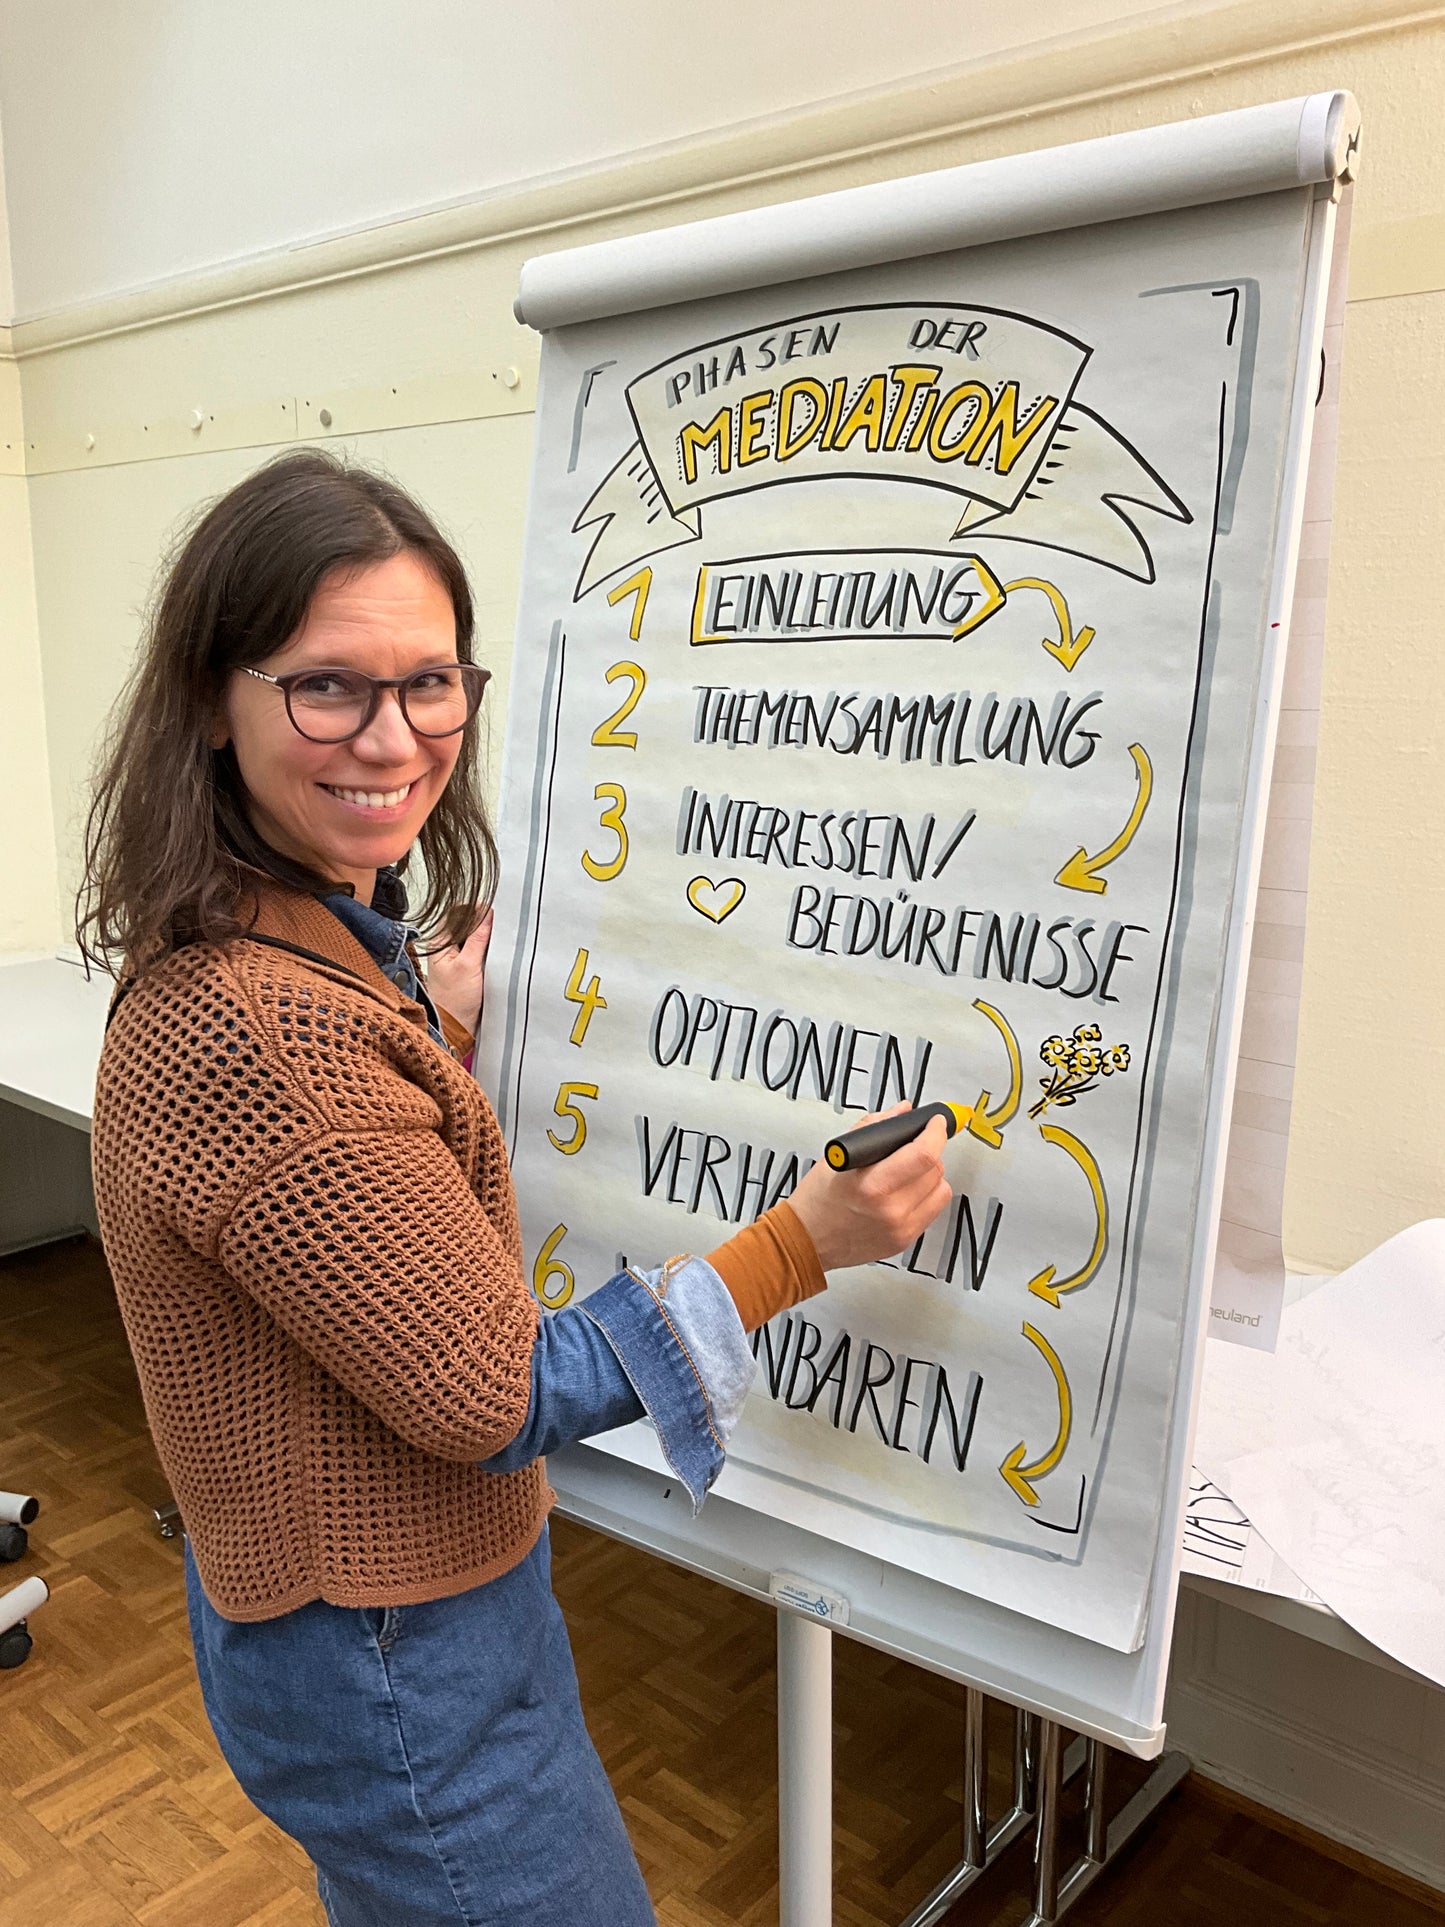 PHASEN DER
MEDIATION
1 EINLEITUNG
2 THEMENSAMMLUNG
3 INTERESSEN/
BEDÜRFNISSE
4 OPTIONEN
5
6
neuland